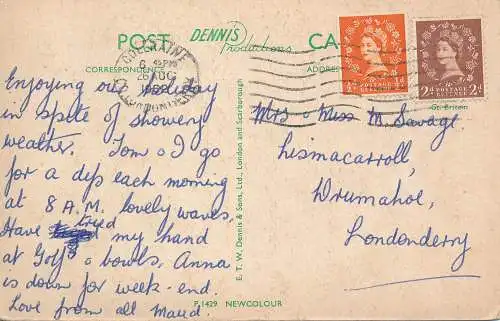 POST DENNIS Productions CA
CORRESPONDENCE
ADDRES
COLERAINE
6 PM
26 AUG
LONDONDERRY
½d
POSTAGE REVENUE
2d 2d
POSTAGE REVENUE
Gt. Britain
Enjoying our holiday
in spite of showery
weather. Tom & I go
for a dip each morning
at 8 A.M. lovely waves,
Have tried my hand
at Golf & bowls, Anna
is down for week-end.
Love from all Maud.
E. T. W. Dennis & Sons, Ltd., London and Scarborough
Mrs & Miss M Savage
Lismacarroll,
Drumahoe,
Londonderry
P.1429 NEWCOLOUR